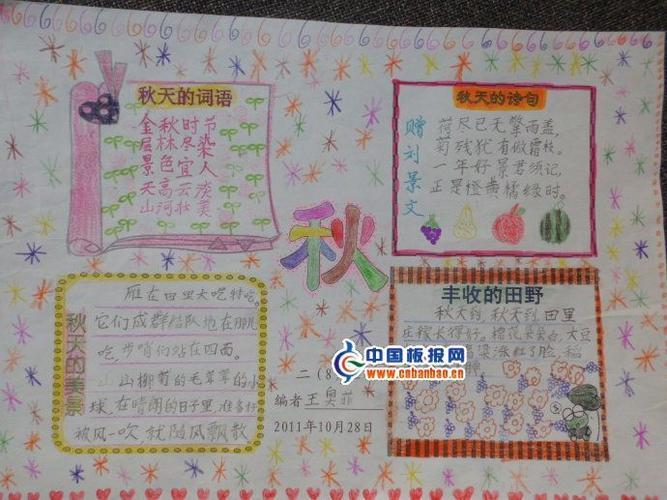 秋天的词语
金秋时节
层林尽染
景色宜人
天高云淡
山河壮美
秋天的诗句
赠刘景文
荷尽已无擎雨盖,
菊残犹有傲霜枝。
一年好景君须记,
正是橙黄橘绿时。
秋
秋天的美景
雁在田里大吃特吃。
它们成群结队地在那儿
吃,步哨们站在四面。
山柳菊的毛茸茸的小
球,在晴朗的日子里,准备好
被风一吹就随风飘散
丰收的田野
秋天到,秋天到,田里
庄稼长得好。棉花朵朵白,大豆
涨红了脸,稻
中国板报网
www.cnbanbao.cn
二(8
编者王奥菲
2011年10月28日